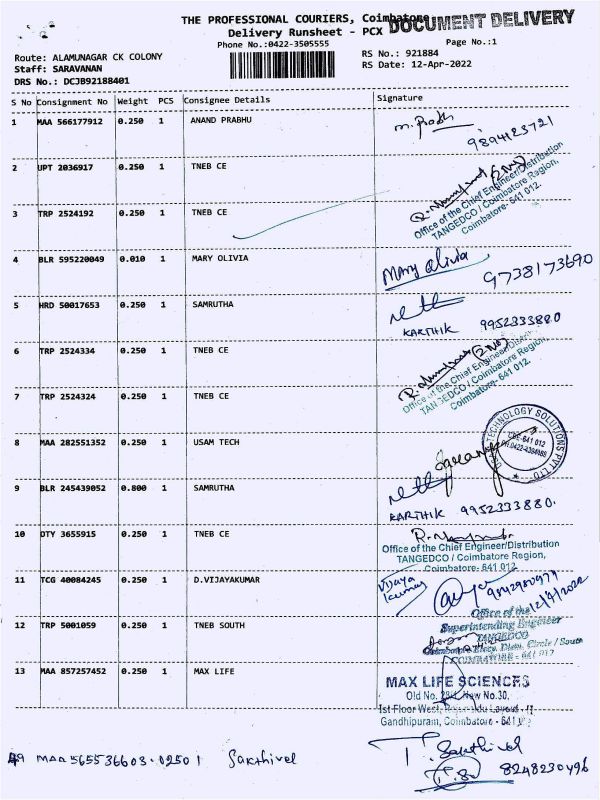 THE PROFESSIONAL COURIERS, Coimbatore
DOCUMENT DELIVERY
Delivery Runsheet - PCX
Phone No.:0422-3505555
Page No.:1
Route: ALAMUNAGAR CK COLONY
RS No.: 921884
Staff: SARAVANAN
RS Date: 12-Apr-2022
DRS No.: DCJB92188401
S No Consignment No Weight PCS Consignee Details Signature
1 MAA 566177912 0.250 1 ANAND PRABHU
9894123721
2 UPT 2036917 0.250 1 TNEB CE
Office of the Chief Engineer/Distribution
TANGEDCO / Coimbatore Region,
Coimbatore- 641 012.
3 TRP 2524192 0.250 1 TNEB CE
4 BLR 595220049 0.010 1 MARY OLIVIA Mary Olivia 9738173690
5 HRD 50017653 0.250 1 SAMRUTHA
KARTHIK 9952333880
6 TRP 2524334 0.250 1 TNEB CE
Office of the Chief Engineer/Distri
TANGEDCO / Coimbatore Region,
Coimbatore- 641 012.
7 TRP 2524324 0.250 1 TNEB CE
8 MAA 282551352 0.250 1 USAM TECH
USAM TECHNOLOGY SOLUTIONS PVT LTD
CBE-641 012
9 BLR 245439052 0.800 1 SAMRUTHA
KARTHIK 9952333880.
10 DTY 3655915 0.250 1 TNEB CE
Office of the Chief Engineer/Distribution
TANGEDCO / Coimbatore Region,
Coimbatore- 641 012
11 TCG 40084245 0.250 1 D.VIJAYAKUMAR Vijaya
kumar
12/4/2022
12 TRP 5001059 0.250 1 TNEB SOUTH
Office of the
Superintending Engineer
TANGEDCO
Coimbatore Elecy. Distn. Circle / South
COIMBATORE - 641 012
13 MAA 857257452 0.250 1 MAX LIFE
MAX LIFE SCIENCES
Old No. New No.30,
1st Floor West,
Gandhipuram, Coimbatore - 641
T. Sakthivel
8248230496
MAA 565536603 - 0250 1 Sakthivel